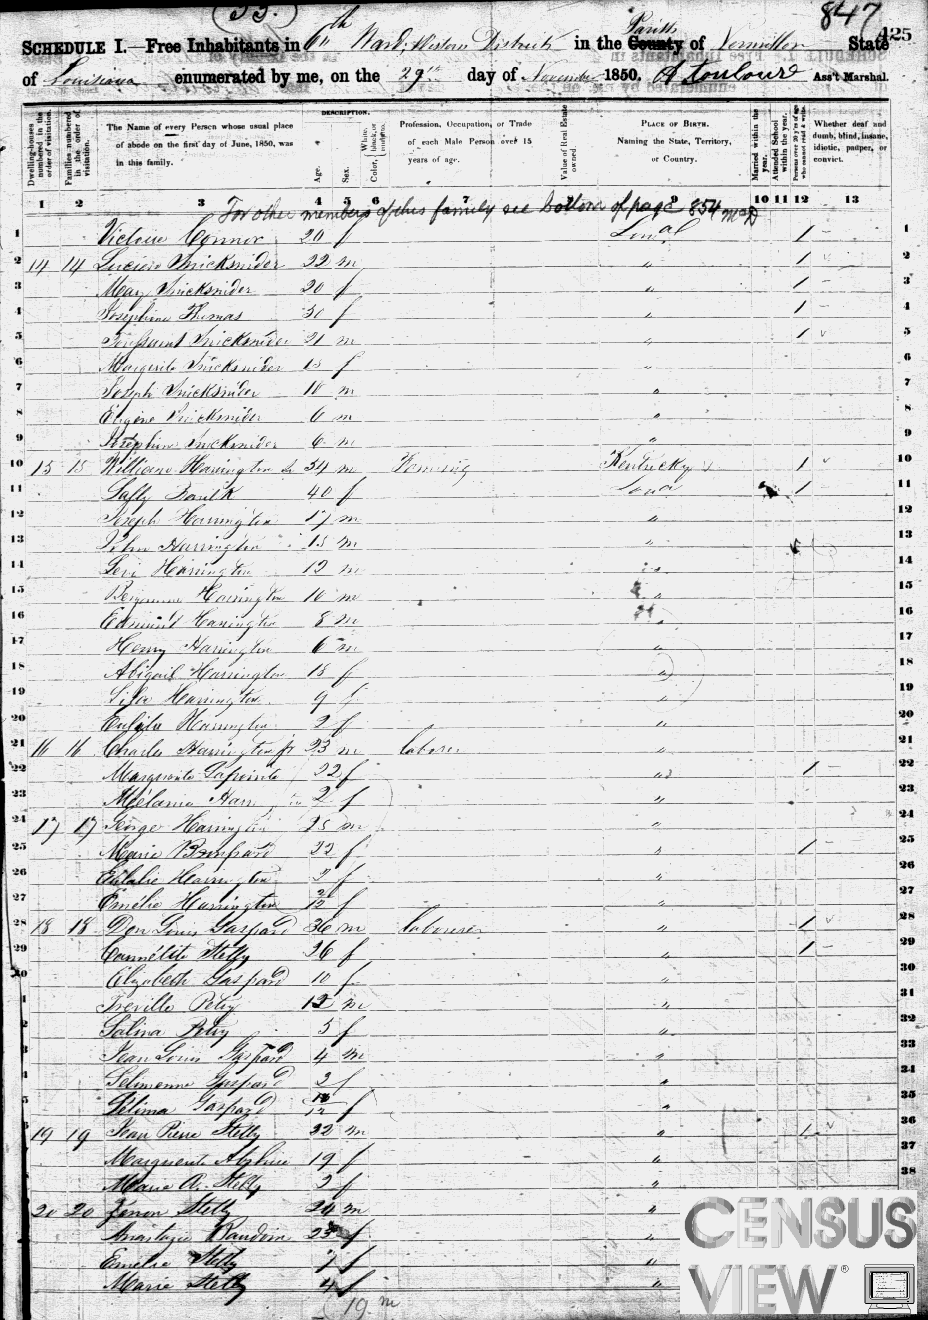 (33.)
847
125
SCHEDULE I.—Free Inhabitants in 6th Ward, Western District in the County Parish of Vermillon State
of Louisiana enumerated by me, on the 29th day of November 1850. A Toulouse Ass't Marshal.
Dwelling-houses numbered in the order of visitation.
Families numbered in the order of visitation.
The Name of every Person whose usual place of abode on the first day of June, 1850, was in this family.
DESCRIPTION.
Age.
Sex.
Color, White, black, or mulatto.
Profession, Occupation, or Trade of each Male Person over 15 years of age.
Value of Real Estate owned.
PLACE OF BIRTH.
Naming the State, Territory, or Country.
Married within the year.
Attended School within the year.
Persons over 20 y'rs of age who cannot read & write.
Whether deaf and dumb, blind, insane, idiotic, pauper, or convict.
1 2 3 4 5 6 7 8 9 10 11 12 13
For other members of this family see bottom of page 854 McD
1 Victoire Connor 20 f Loua 1 1
2 14 14 Lucien Snicksnider 22 m " 1 2
3 Mary Snicksnider 20 f " 1 3
4 Josephine Thomas 50 f " 1 4
5 Toussaint Snicksnider 21 m " 1 5
6 Marguerite Snicksnider 15 f " 6
7 Joseph Snicksnider 10 m " 7
8 Eugène Snicksnider 6 m " 8
9 Josephine Snicksnider 6 m " 9
10 15 15 William Harrington Sr 54 m Farming Kentucky 1 10
11 Sally Baulk 40 f Loua 1 11
12 Joseph Harrington 17 m " 12
13 John Harrington 15 m " 13
14 Levi Harrington 12 m " 14
15 Benjamin Harrington 10 m " 15
16 Edmund Harrington 8 m " 16
17 Henry Harrington 6 m " 17
18 Abigail Harrington 18 f " 18
19 Harrington 9 f " 19
20 Harrington 2 f " 20
21 16 16 Charles Harrington Jr 23 m laborer " 21
22 Marguerite Lapointe 22 f " 1 22
23 Mélanie Harrington 2 f " 23
24 17 17 George Harrington 25 m " 24
25 Marie Bonpard 22 f " 1 25
26 Eulalie Harrington 2 f " 26
27 Emélie Harrington 2/12 f " 27
28 18 18 Don Louis Gaspard 36 m laborer " 1 28
29 Carmélite Stelly 26 f " 1 29
30 Elizabeth Gaspard 10 f " 30
Treville Petry 12 m " 31
Salina Petry 5 f " 32
Jean Louis Gaspard 4 m " 33
Selimenne Gaspard 2 f " 34
Sélima Gaspard 10/12 f " 35
19 19 Jean Pierre Stelly 22 m " 1 36
Marguerite 19 f " 37
Marie A. Stelly 2 f " 38
20 20 Zenon Stelly 24 m "
Anastazie Baudoin 23 f "
Emelie Stelly 7 f "
Marie Stelly 4 f "
19 m
CENSUS
VIEW®